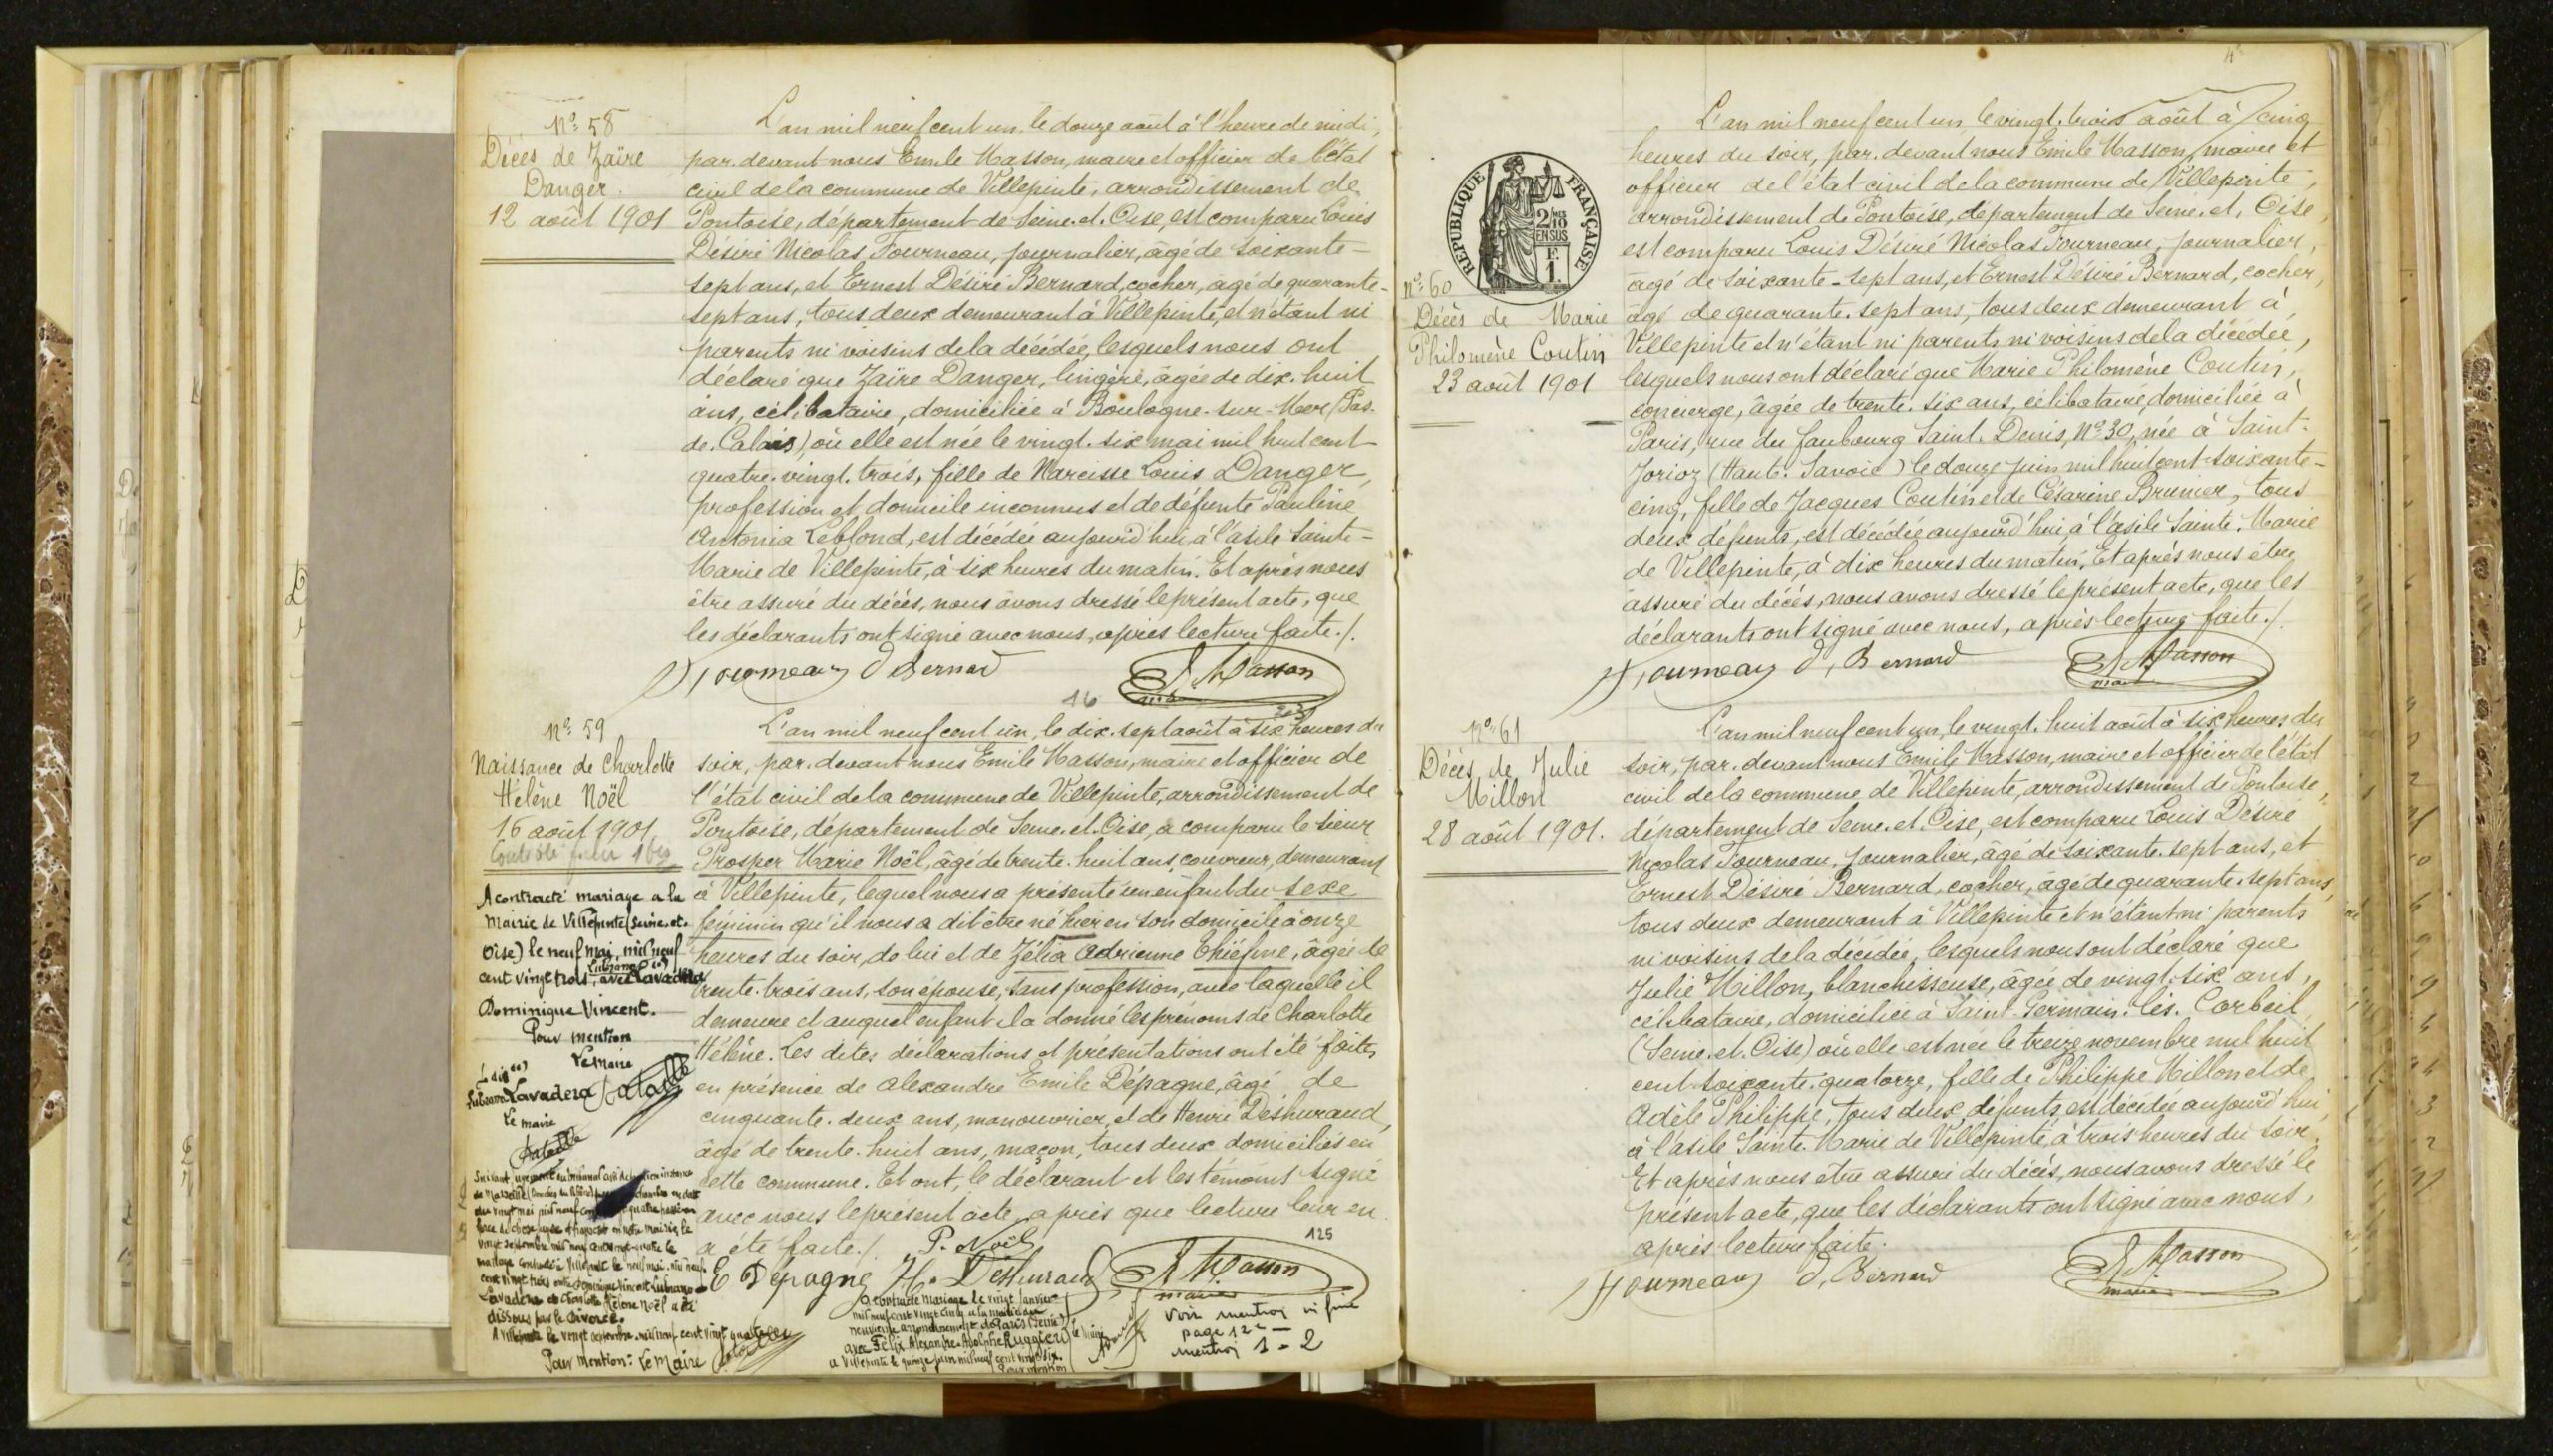 Nº 58
Décès de Zaïre
Danger.
12 août 1901
L'an mil neuf cent un le douze août à l'heure de midi,
par-devant nous Emile Masson, maire et officier de l'état
civil de la commune de Villepinte, arrondissement de
Pontoise, département de Seine-et-Oise, est comparu Louis
Désiré Nicolas Tourneau, journalier, âgé de soixante-
sept ans, et Ernest Désiré Bernard, cocher, âgé de quarante-
sept ans, tous deux demeurant à Villepinte, et n'étant ni
parents ni voisins de la décédée, lesquels nous ont
déclaré que Zaïre Danger, lingère, âgée de dix-huit
ans, célibataire, domiciliée à Boulogne-sur-Mer (Pas-
de-Calais) où elle est née le vingt-six mai mil huit cent
quatre-vingt-trois, fille de Narcisse Louis Danger,
profession et domicile inconnus et de défunte Pauline
Antonia Leblond, est décédée aujourd'hui à l'asile Sainte-
Marie de Villepinte, à six heures du matin. Et après nous
être assuré du décès, nous avons dressé le présent acte, que
les déclarants ont signé avec nous, après lecture faite./.
Tourneau D Bernard E Masson
maire
16
Nº 59
Naissance de Charlotte
Hélène Noël
16 août 1901
L'an mil neuf cent un, le dix-sept août à six heures du
soir, par-devant nous Emile Masson, maire et officier de
l'état civil de la commune de Villepinte, arrondissement de
Pontoise, département de Seine-et-Oise, a comparu le sieur
Prosper Marie Noël, âgé de trente-huit ans, couvreur, demeurant
à Villepinte, lequel nous a présenté un enfant du sexe
féminin qu'il nous a dit être né hier en son domicile à onze
heures du soir, de lui et de Zélia Adrienne Chiéfine, âgée de
trente-trois ans, son épouse, sans profession, avec laquelle il
demeure et auquel enfant il a donné les prénoms de Charlotte
Hélène. Les dites déclarations et présentations ont été faites
en présence de Alexandre Emile Dépagne, âgé de
cinquante-deux ans, manouvrier, et de Henri Deshuraud,
âgé de trente-huit ans, maçon, tous deux domiciliés en
cette commune. Et ont, le déclarant et les témoins signé
avec nous le présent acte, après que lecture leur en
a été faite./. P. Noël
125
E Dépagne H. Deshuraud E Masson
maire
A contracté mariage à la
Mairie de Villepinte (Seine-et-
Oise) le neuf mai, mil neuf
cent vingt trois, avec Lubrano Lavadera
Dominique Vincent.
Pour mention
Le Maire
Lubrano Lavadera
Le maire
du vingt mai mil neuf cent
vingt septembre mil neuf cent vingt-quatre le
mariage contracté à Villepinte le neuf mai mil neuf
cent vingt trois entre Dominique Vincent Lubrano
Lavadera et Charlotte Hélène Noël a été
dissous par le divorce.
A Villepinte le vingt septembre mil neuf cent vingt quatre
Pour mention: Le Maire
a contracté mariage le vingt janvier
mil neuf cent vingt cinq à la mairie du
neuvième arrondissement de Paris (Seine)
avec Félix Alexandre Adolphe Ruggieri
à Villepinte le quinze juin mil neuf cent vingt six.
Pour mention
le maire
Voir mention in fine
page 122
mention 1-2
RÉPUBLIQUE FRANÇAISE
2/10 EN SUS
1 F.
Nº 60
Décès de Marie
Philomène Coutin
23 août 1901
L'an mil neuf cent un, le vingt-trois août à cinq
heures du soir, par-devant nous Emile Masson, maire et
officier de l'état civil de la commune de Villepinte,
arrondissement de Pontoise, département de Seine-et-Oise,
est comparu Louis Désiré Nicolas Tourneau, journalier,
âgé de soixante-sept ans, et Ernest Désiré Bernard, cocher,
âgé de quarante-sept ans, tous deux demeurant à
Villepinte et n'étant ni parents ni voisins de la décédée,
lesquels nous ont déclaré que Marie Philomène Coutin,
concierge, âgée de trente-six ans, célibataire, domiciliée à
Paris, rue du faubourg Saint-Denis, Nº 30, née à Saint-
Jorioz (Haute-Savoie) le douze juin mil huit cent soixante-
cinq, fille de Jacques Coutin et de Césarine Brunier, tous
deux défunts, est décédée aujourd'hui, à l'asile Sainte-Marie
de Villepinte, à dix heures du matin. Et après nous être
assuré du décès, nous avons dressé le présent acte, que les
déclarants ont signé avec nous, après lecture faite./.
Tourneau D, Bernard E Masson
maire
Nº 61
Décès de Julie
Millon
28 août 1901.
L'an mil neuf cent un, le vingt-huit août à six heures du
soir, par-devant nous Emile Masson, maire et officier de l'état
civil de la commune de Villepinte, arrondissement de Pontoise,
département de Seine-et-Oise, est comparu Louis Désiré
Nicolas Tourneau, journalier, âgé de soixante-sept ans, et
Ernest Désiré Bernard, cocher, âgé de quarante-sept ans,
tous deux demeurant à Villepinte et n'étant ni parents
ni voisins de la décédée, lesquels nous ont déclaré que
Julie Millon, blanchisseuse, âgée de vingt-six ans,
célibataire, domiciliée à Saint-Germain-lès-Corbeil
(Seine-et-Oise) où elle est née le treize novembre mil huit
cent soixante-quatorze, fille de Philippe Millon et de
Adèle Philippe, tous deux défunts, est décédée aujourd'hui,
à l'asile Sainte-Marie de Villepinte, à trois heures du soir.
Et après nous être assuré du décès, nous avons dressé le
présent acte, que les déclarants ont signé avec nous,
après lecture faite.
Tourneau D, Bernard E Masson
maire